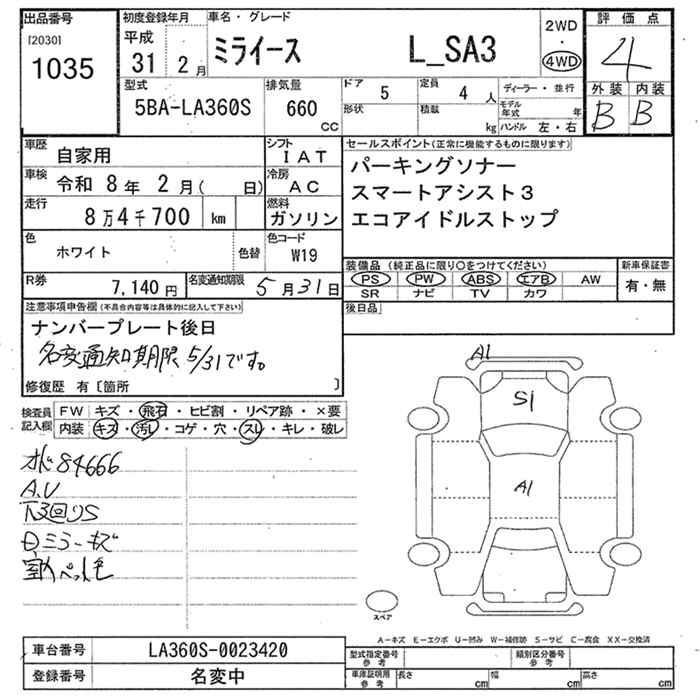 出品番号
[2030]
1035
初度登録年月
平成
31年 2月
車名・グレード
ミライース L_SA3
2WD
・
4WD
評価点
4
外装 内装
B B
型式
5BA-LA360S
排気量
660
CC
ドア
5
形状
定員
4人
積載
kg
ディーラー・並行
モデル年式 年
ハンドル 左・右
車歴
自家用
シフト
IAT
車検
令和 8年 2月 ( 日)
冷房
AC
走行
8万4千700 km
燃料
ガソリン
色
ホワイト
色替
色コード
W19
R券
7,140円
名変通知期限
5月31日
セールスポイント(正常に機能するものに限ります)
パーキングソナー
スマートアシスト3
エコアイドルストップ
装備品 (純正品に限り○をつけてください)
PS PW ABS エアB AW
SR ナビ TV カワ
新車保証書
有・無
後日品
注意事項申告欄(不具合内容等は具体的に記入して下さい)
ナンバープレート後日
名変通知期限 5/31です。
修復歴 有〔箇所 〕
検査員記入欄
FW キズ・飛石・ヒビ割・リペア跡・×要
内装 キズ・汚レ・コゲ・穴・スレ・キレ・破レ
84666
A.V
下廻りS
ミラーキズ
A1
S1
A1
スペア
A-キズ E-エクボ U-凹み W-補修跡 S-サビ C-腐食 XX-交換済
車台番号 LA360S-0023420
登録番号 名変中
型式指定番号
参考
類別区分番号
参考
車庫証明用
参考
長さ cm
幅 cm
高さ cm